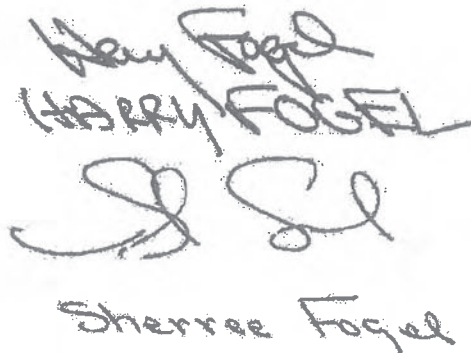 Harry Fogel
HARRY FOGEL
Sherree Fogel